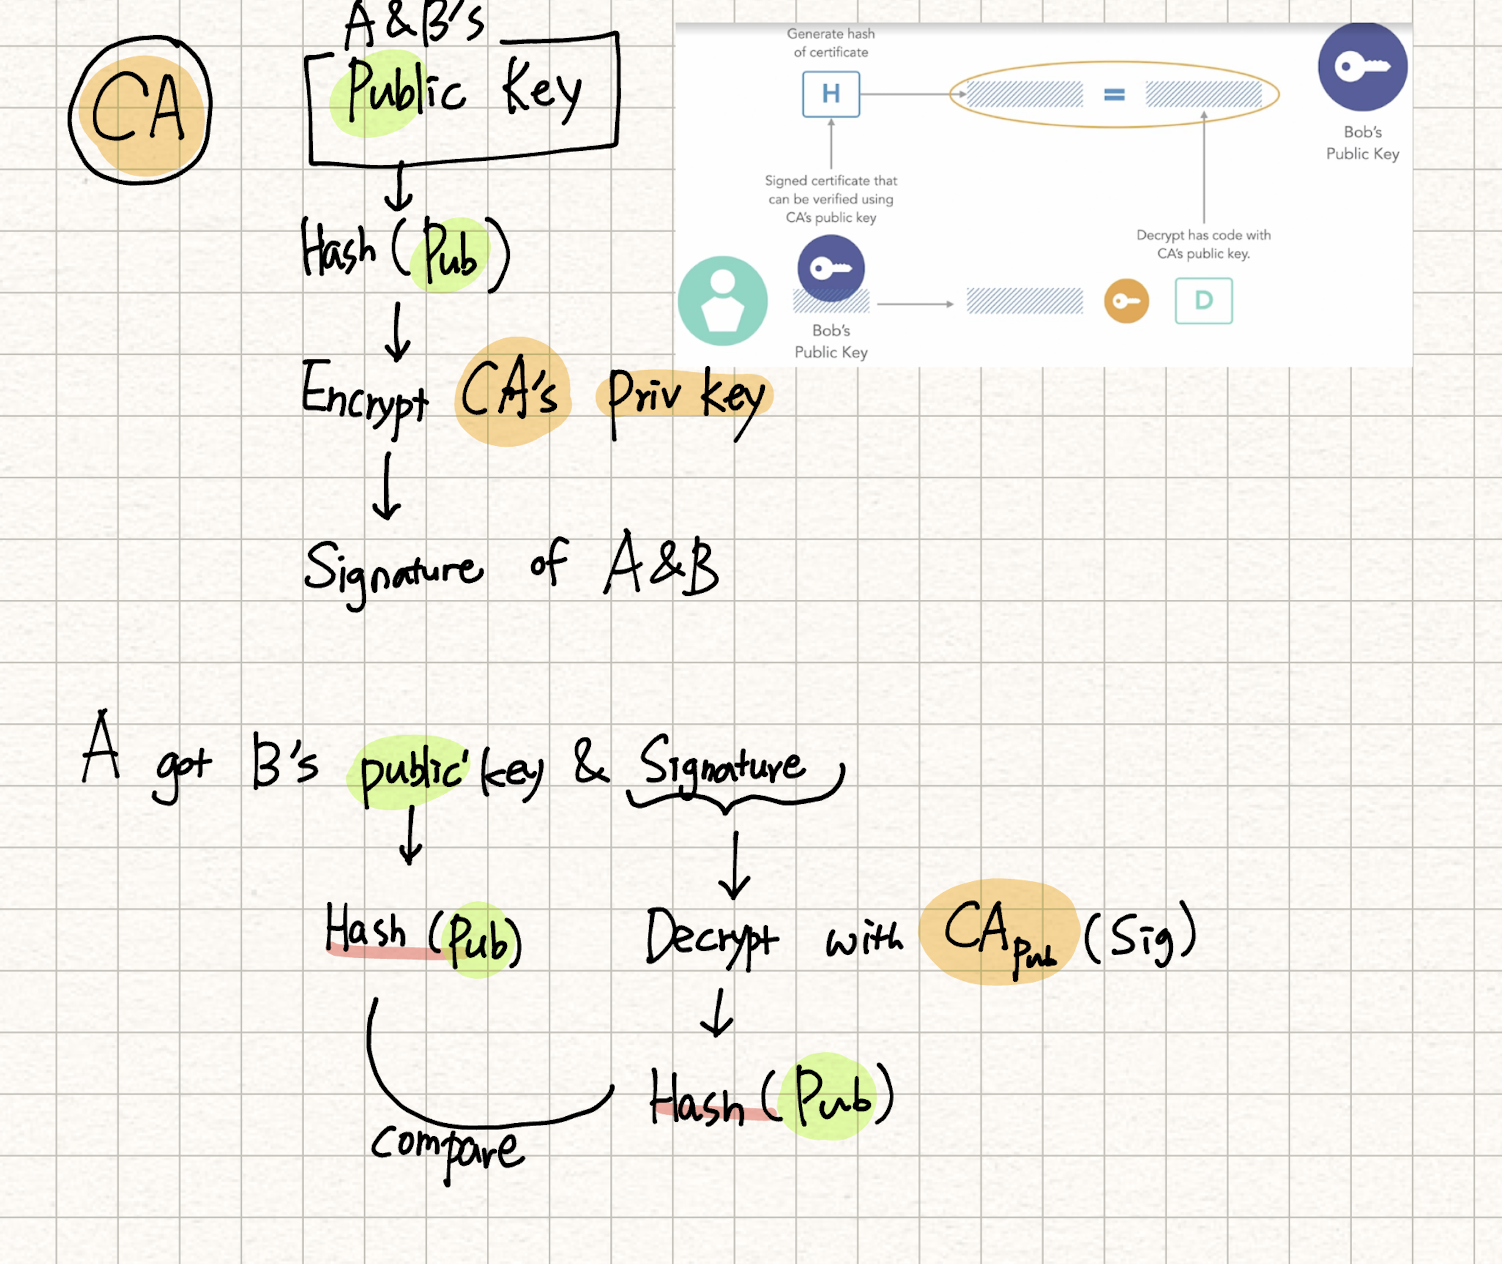 CA
A & B's
Public Key
Hash (Pub)
Encrypt CA's Priv key
Signature of A & B
Generate hash
of certificate
H
=
Bob's
Public Key
Signed certificate that
can be verified using
CA's public key
Decrypt has code with
CA's public key.
D
Bob's
Public Key
A got B's public key & Signature
Hash (Pub)
Decrypt with CA Pub (Sig)
Hash (Pub)
compare